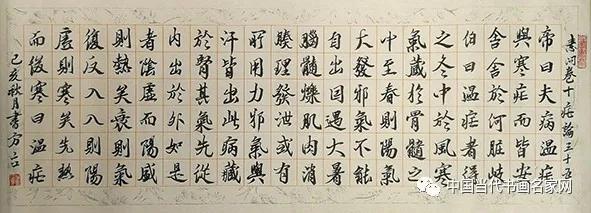 素问卷十 疟論三十五
帝曰夫病温疟
與寒疟而皆安
舍舍於何脏岐
伯曰温疟者得
之冬中於風寒
氣藏於骨髓之
中至春則陽氣
大發邪氣不能
自出因遇大暑
腦髓爍肌肉消
腠理發泄或有
所用力邪氣與
汗皆出此病藏
於腎其氣先從
内出於外如是
者陰虛而陽盛
則熱矣衰則氣
復反入入則陽
虛則寒矣先熱
而後寒曰温疟
己亥秋月書方
中国当代书画名家网